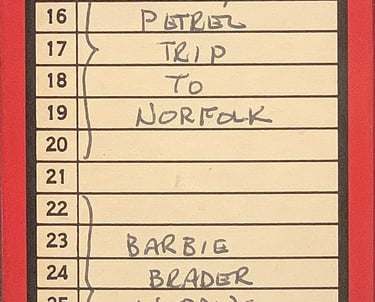 16 PETREL
17 TRIP
18 TO
19 NORFOLK
20
21
22
23 BARBIE
24 BRADER
25